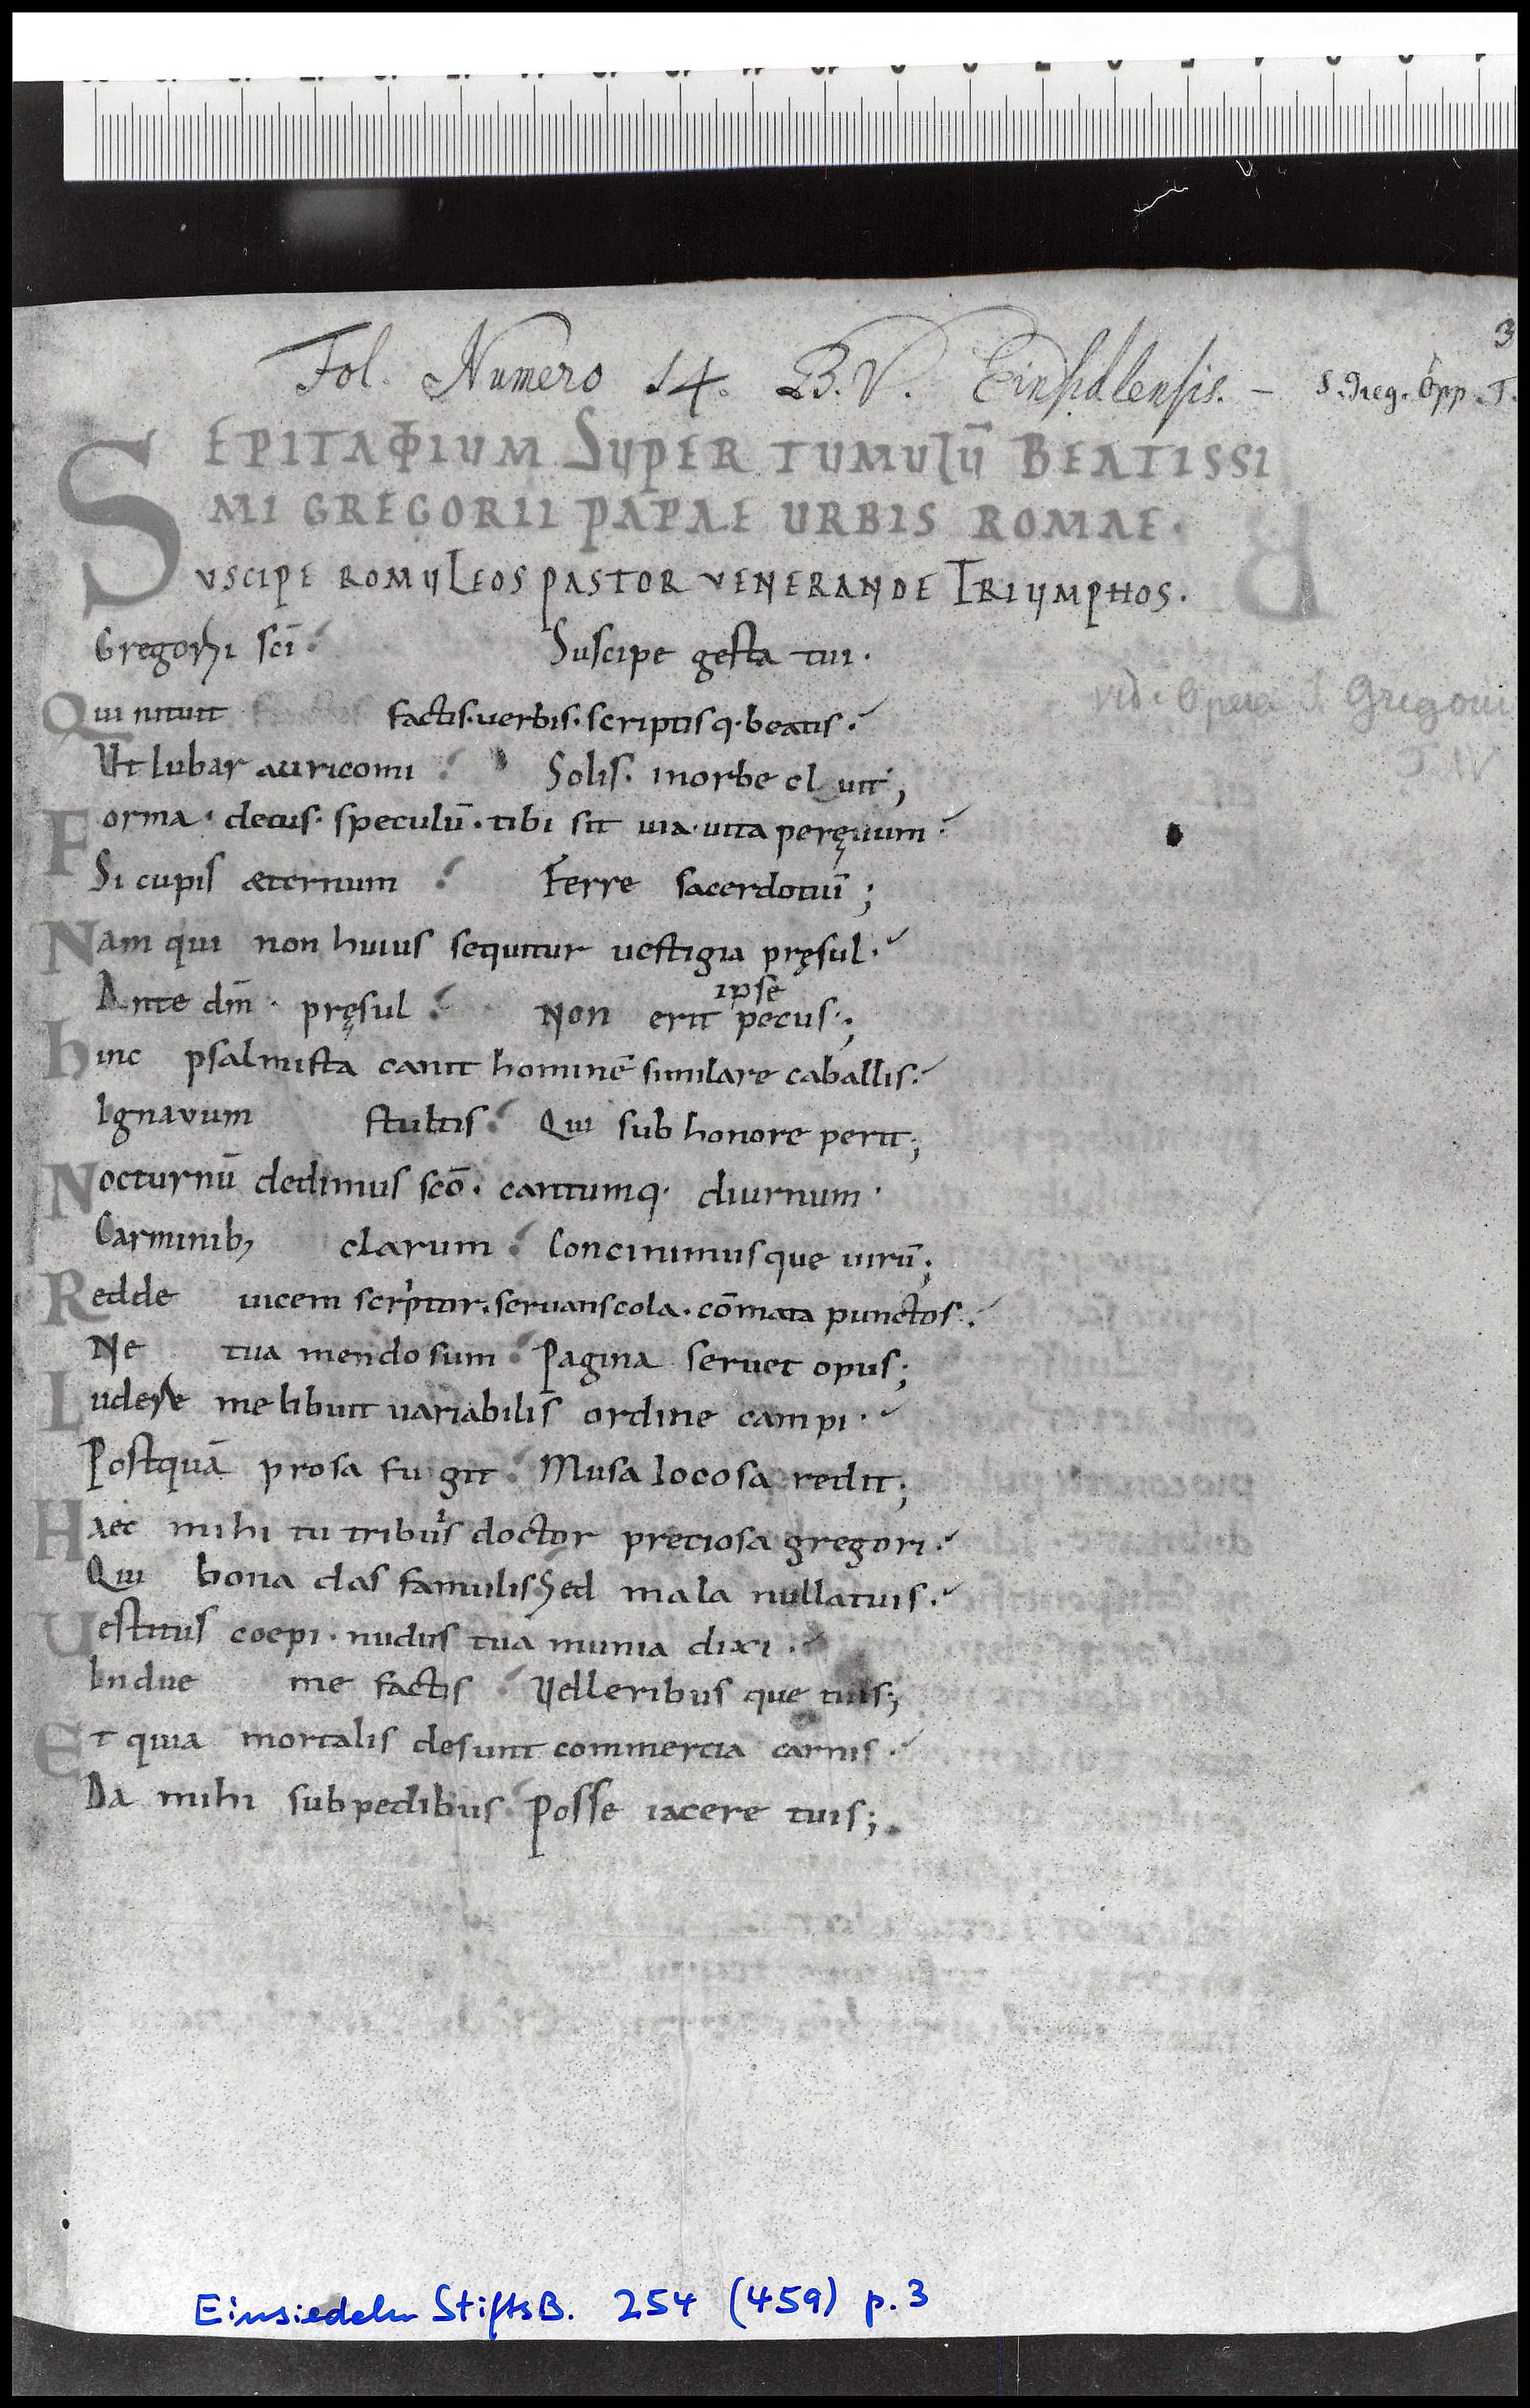 3
Fol. Numero 14. B.V. Einsidlensis. – S. Greg. Opp. T.
EPITAΦIUM SUPER TUMULŪ BEATISSI
MI GREGORII PAPAE URBIS ROMAE.
SUSCIPE ROMULEOS PASTOR VENERANDE TRIUMPHOS.
Gregorii sc̄i Suscipe gesta tui.
Qui nituit factis. uerbis. scriptisq. beatis.
vid. Opera S. Gregorii
T. IV
Ut Iubar auricomi Solis. in orbe cluit;
Forma. decus. speculū. tibi sit uia. uita peręuum.
Si cupis æternum Ferre sacerdotiū;
Nam qui non huius sequitur uestigia pręsul.
ipse
Ante dm̄. pręsul Non erit pecus;
hinc psalmista canit hominē similare caballis.
Ignavum stultis. Qui sub honore perit;
Nocturnū dedimus scō. cantumq. diurnum.
Carminib; clarum. Concinimusque uirū;
Redde uicem scriptor. servans cola. cōmata punctos.
Ne tua mendosum Pagina seruet opus;
Ludere me libuit variabilis ordine campi.
Postquā prosa fugit. Musa Iocosa redit;
Haec mihi tu tribuis doctor preciosa gregori.
Qui bona das famulis Sed mala nulla tuis.
Uestitus coepi. nudus tua munia dixi.
Indue me factis Uelleribus que tuis;
Et quia mortalis desunt commercia carnis.
Da mihi sub pedibus Posse iacere tuis;
Einsiedeln StiftsB. 254 (459) p. 3